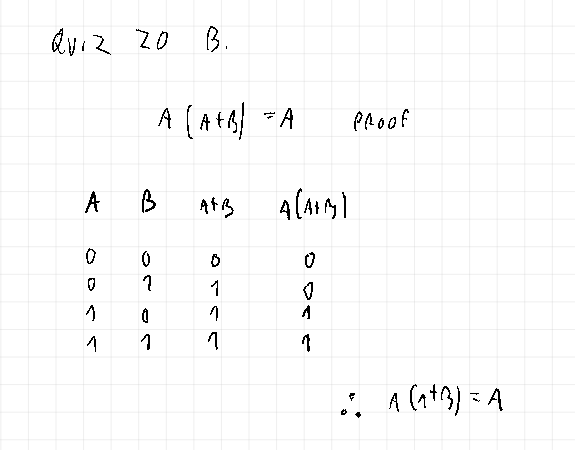 QUIZ 20 B.
A(A+B) = A PROOF
A B A+B A(A+B)
0 0 0 0
0 1 1 0
1 0 1 1
1 1 1 1
∴ A(A+B) = A